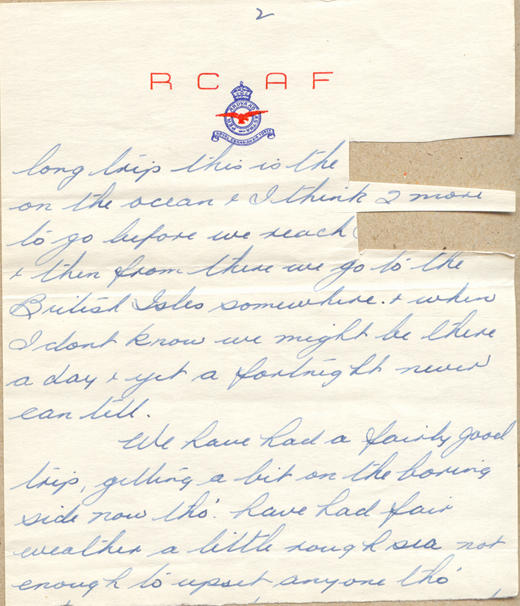 2
RCAF
long trip this is the
on the ocean & I think 2 more
to go before we reach
& then from there we go to the
British Isles somewhere. & when
I dont know we might be there
a day & yet a fortnight never
can tell.
We have had a fairly good
trip, getting a bit on the boring
side now tho'. have had fair
weather a little rough sea not
enough to upset anyone tho'